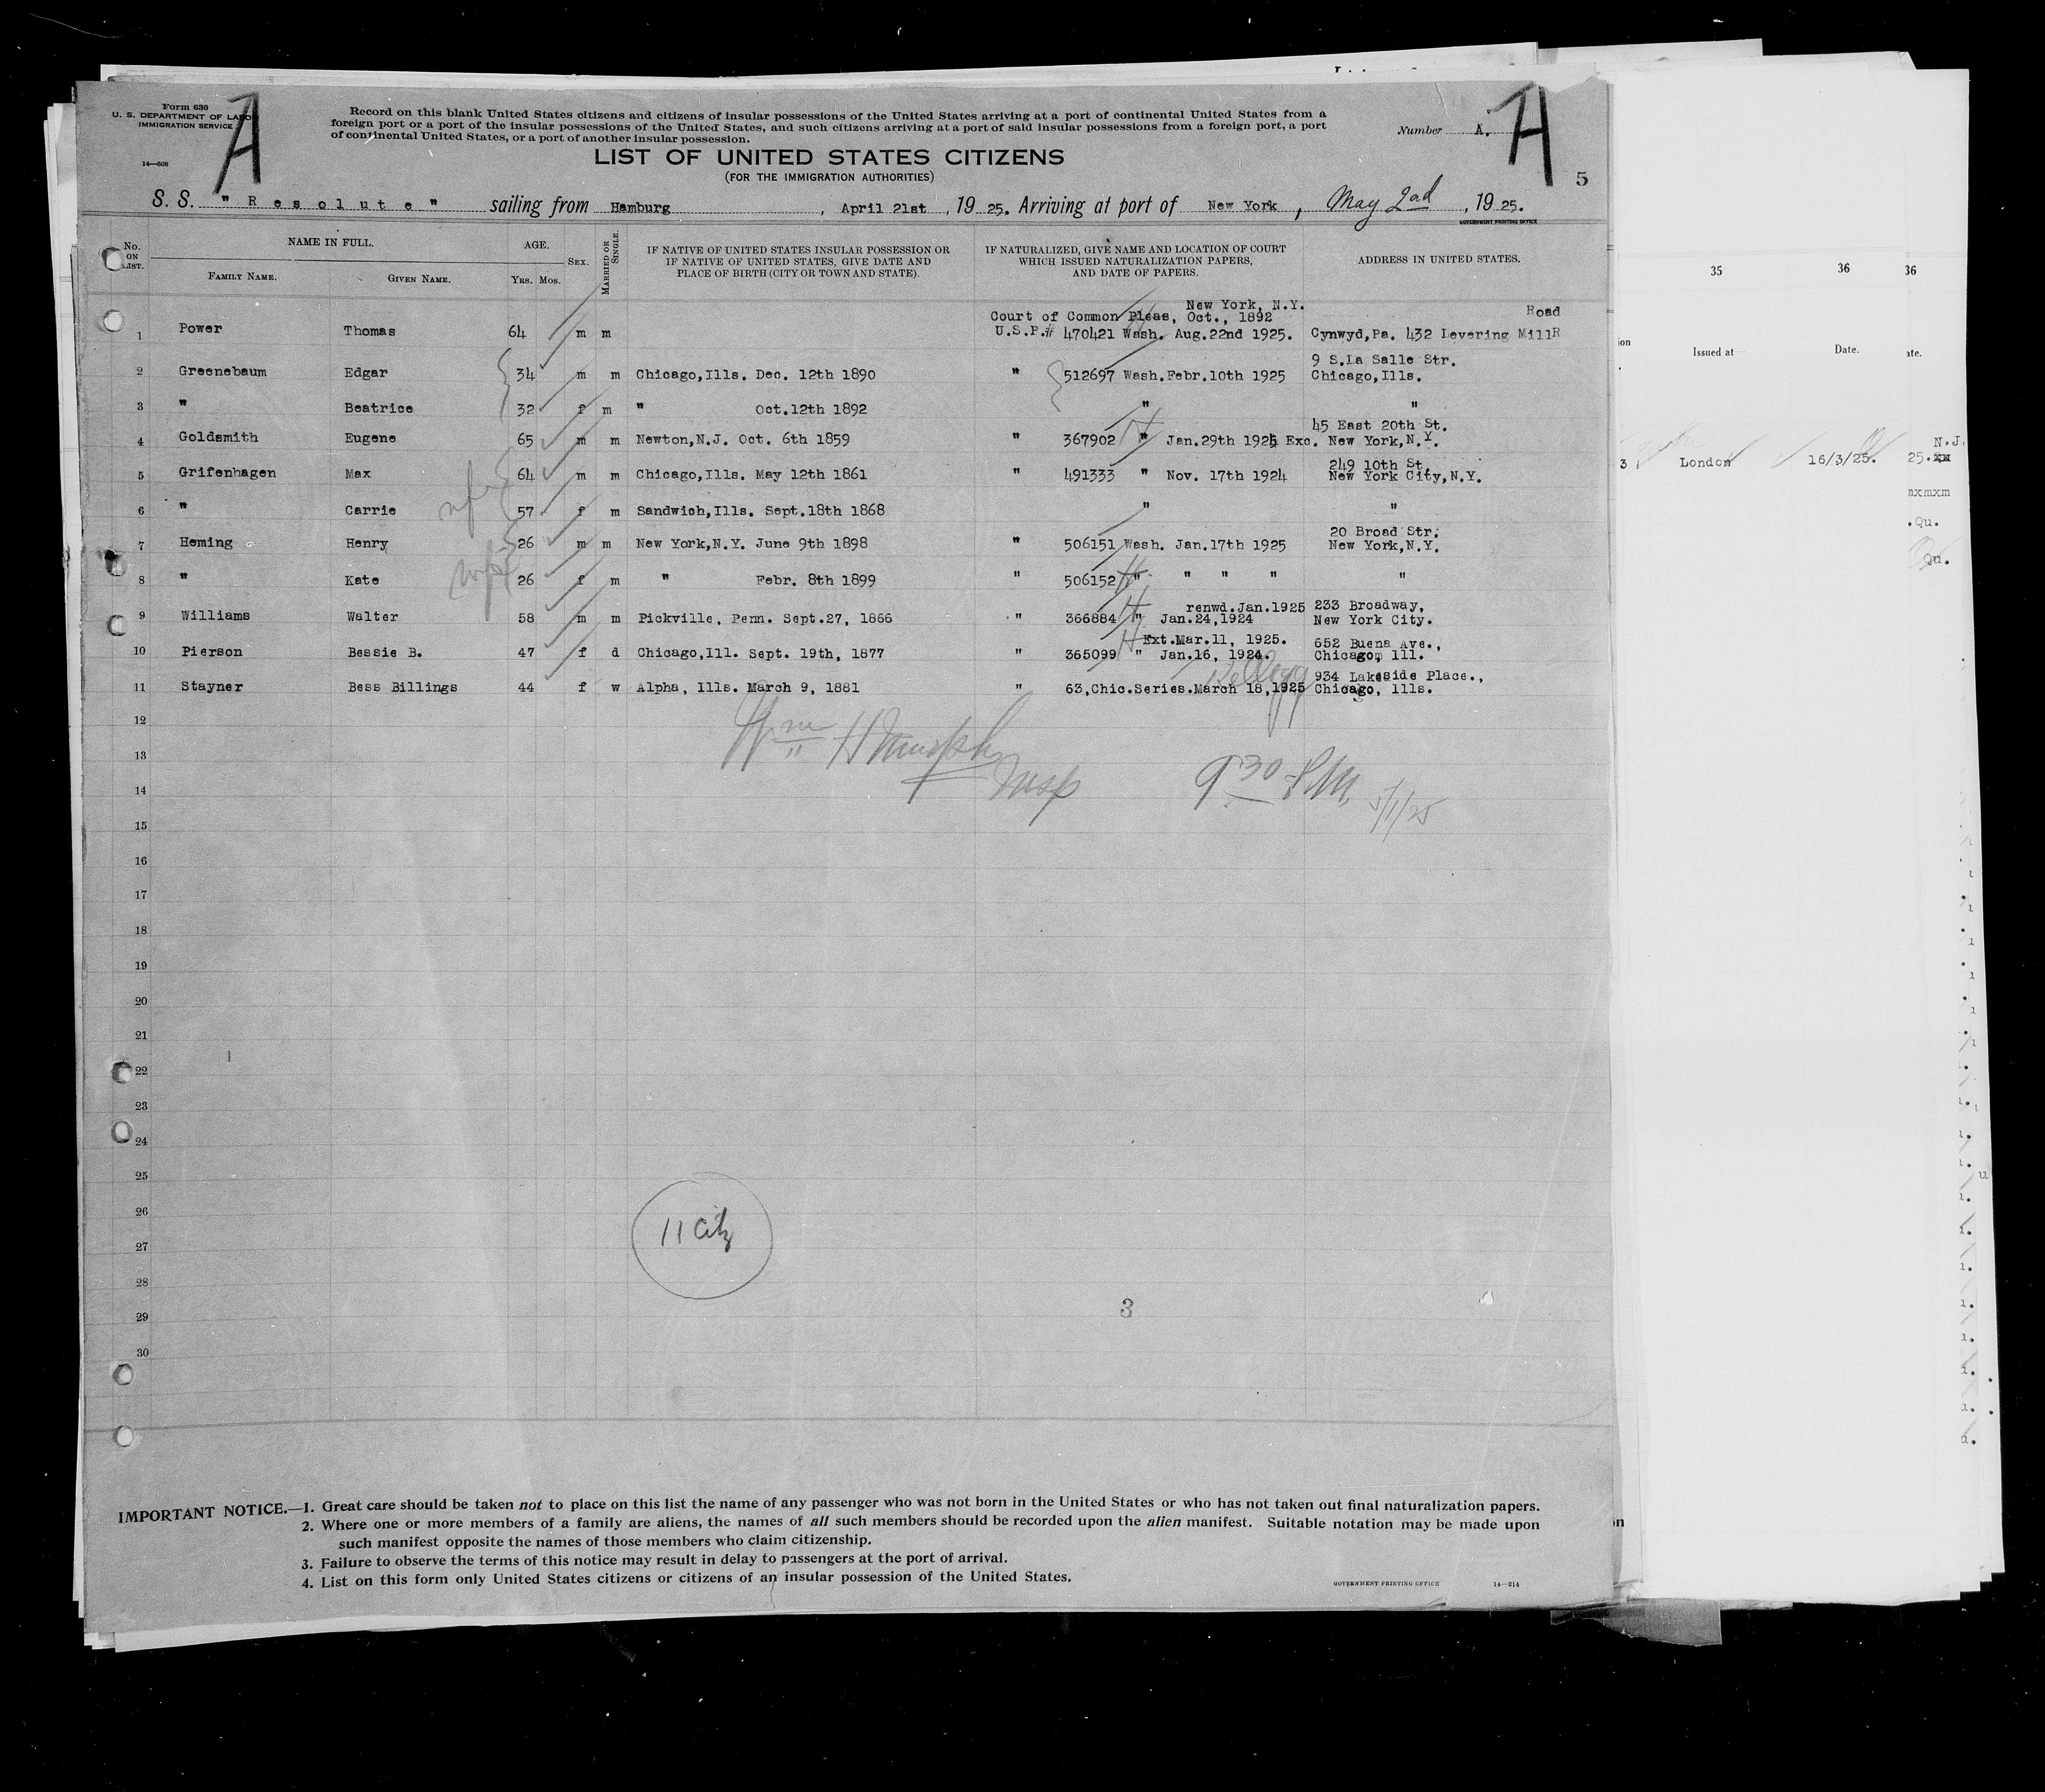 Form 630
U. S. DEPARTMENT OF LABOR
IMMIGRATION SERVICE
14—608
A
Record on this blank United States citizens and citizens of insular possessions of the United States arriving at a port of continental United States from a
foreign port or a port of the insular possessions of the United States, and such citizens arriving at a port of said insular possessions from a foreign port, a port
of continental United States, or a port of another insular possession.
Number A.
LIST OF UNITED STATES CITIZENS
(FOR THE IMMIGRATION AUTHORITIES)
5
S. S. "Resolute" sailing from Hamburg, April 21st, 1925. Arriving at port of New York, May 2nd, 1925.
GOVERNMENT PRINTING OFFICE
No. ON LIST. NAME IN FULL. FAMILY NAME. GIVEN NAME. AGE. YRS. MOS. SEX. MARRIED OR SINGLE. IF NATIVE OF UNITED STATES INSULAR POSSESSION OR IF NATIVE OF UNITED STATES, GIVE DATE AND PLACE OF BIRTH (CITY OR TOWN AND STATE). IF NATURALIZED, GIVE NAME AND LOCATION OF COURT WHICH ISSUED NATURALIZATION PAPERS, AND DATE OF PAPERS. ADDRESS IN UNITED STATES.
New York, N.Y.
Court of Common Pleas, Oct., 1892 Road
1 Power Thomas 64 m m U.S.P.# 470421 Wash. Aug.22nd 1925. Cynwyd,Pa. 432 Levering MillR
9 S.La Salle Str.
2 Greenebaum Edgar 34 m m Chicago,Ills. Dec. 12th 1890 " 512697 Wash.Febr.10th 1925 Chicago,Ills.
3 " Beatrice 32 f m " Oct.12th 1892 " "
45 East 20th St.
4 Goldsmith Eugene 65 m m Newton,N.J. Oct. 6th 1859 " 367902 " Jan.29th 1925 Exc. New York,N.Y.
249 10th St.
5 Grifenhagen Max 64 m m Chicago,Ills. May 12th 1861 " 491333 " Nov. 17th 1924 New York City,N.Y.
6 " Carrie 57 f m Sandwich,Ills. Sept.18th 1868 " "
20 Broad Str.
7 Heming Henry 26 m m New York,N.Y. June 9th 1898 " 506151 Wash. Jan.17th 1925 New York,N.Y.
8 " Kate 26 f m " Febr. 8th 1899 " 506152 " " " " "
renwd.Jan.1925 233 Broadway,
9 Williams Walter 58 m m Pickville, Penn. Sept.27, 1866 " 366884 " Jan.24,1924 New York City.
Ext.Mar.11, 1925. 652 Buena Ave.,
10 Pierson Bessie B. 47 f d Chicago,Ill. Sept. 19th, 1877 " 365099 " Jan.16, 1924. Chicago, Ill.
934 Lakeside Place.,
11 Stayner Bess Billings 44 f w Alpha, Ills. March 9, 1881 " 63,Chic.Series.March 18,1925 Chicago, Ills.
Kellogg
12
Wm H Murphy
13
Insp 9 30 P.M. 5/1/25
14
15
16
17
18
19
20
21
22
23
24
25
26
11 Citz
27
28
29
3
30
IMPORTANT NOTICE.—1. Great care should be taken not to place on this list the name of any passenger who was not born in the United States or who has not taken out final naturalization papers.
2. Where one or more members of a family are aliens, the names of all such members should be recorded upon the alien manifest. Suitable notation may be made upon
such manifest opposite the names of those members who claim citizenship.
3. Failure to observe the terms of this notice may result in delay to passengers at the port of arrival.
4. List on this form only United States citizens or citizens of an insular possession of the United States.
GOVERNMENT PRINTING OFFICE 14—214
35 36 36
Issued at Date. ate.
N.J.
3 London 16/3/25. 25.
.Qu.
Qu.